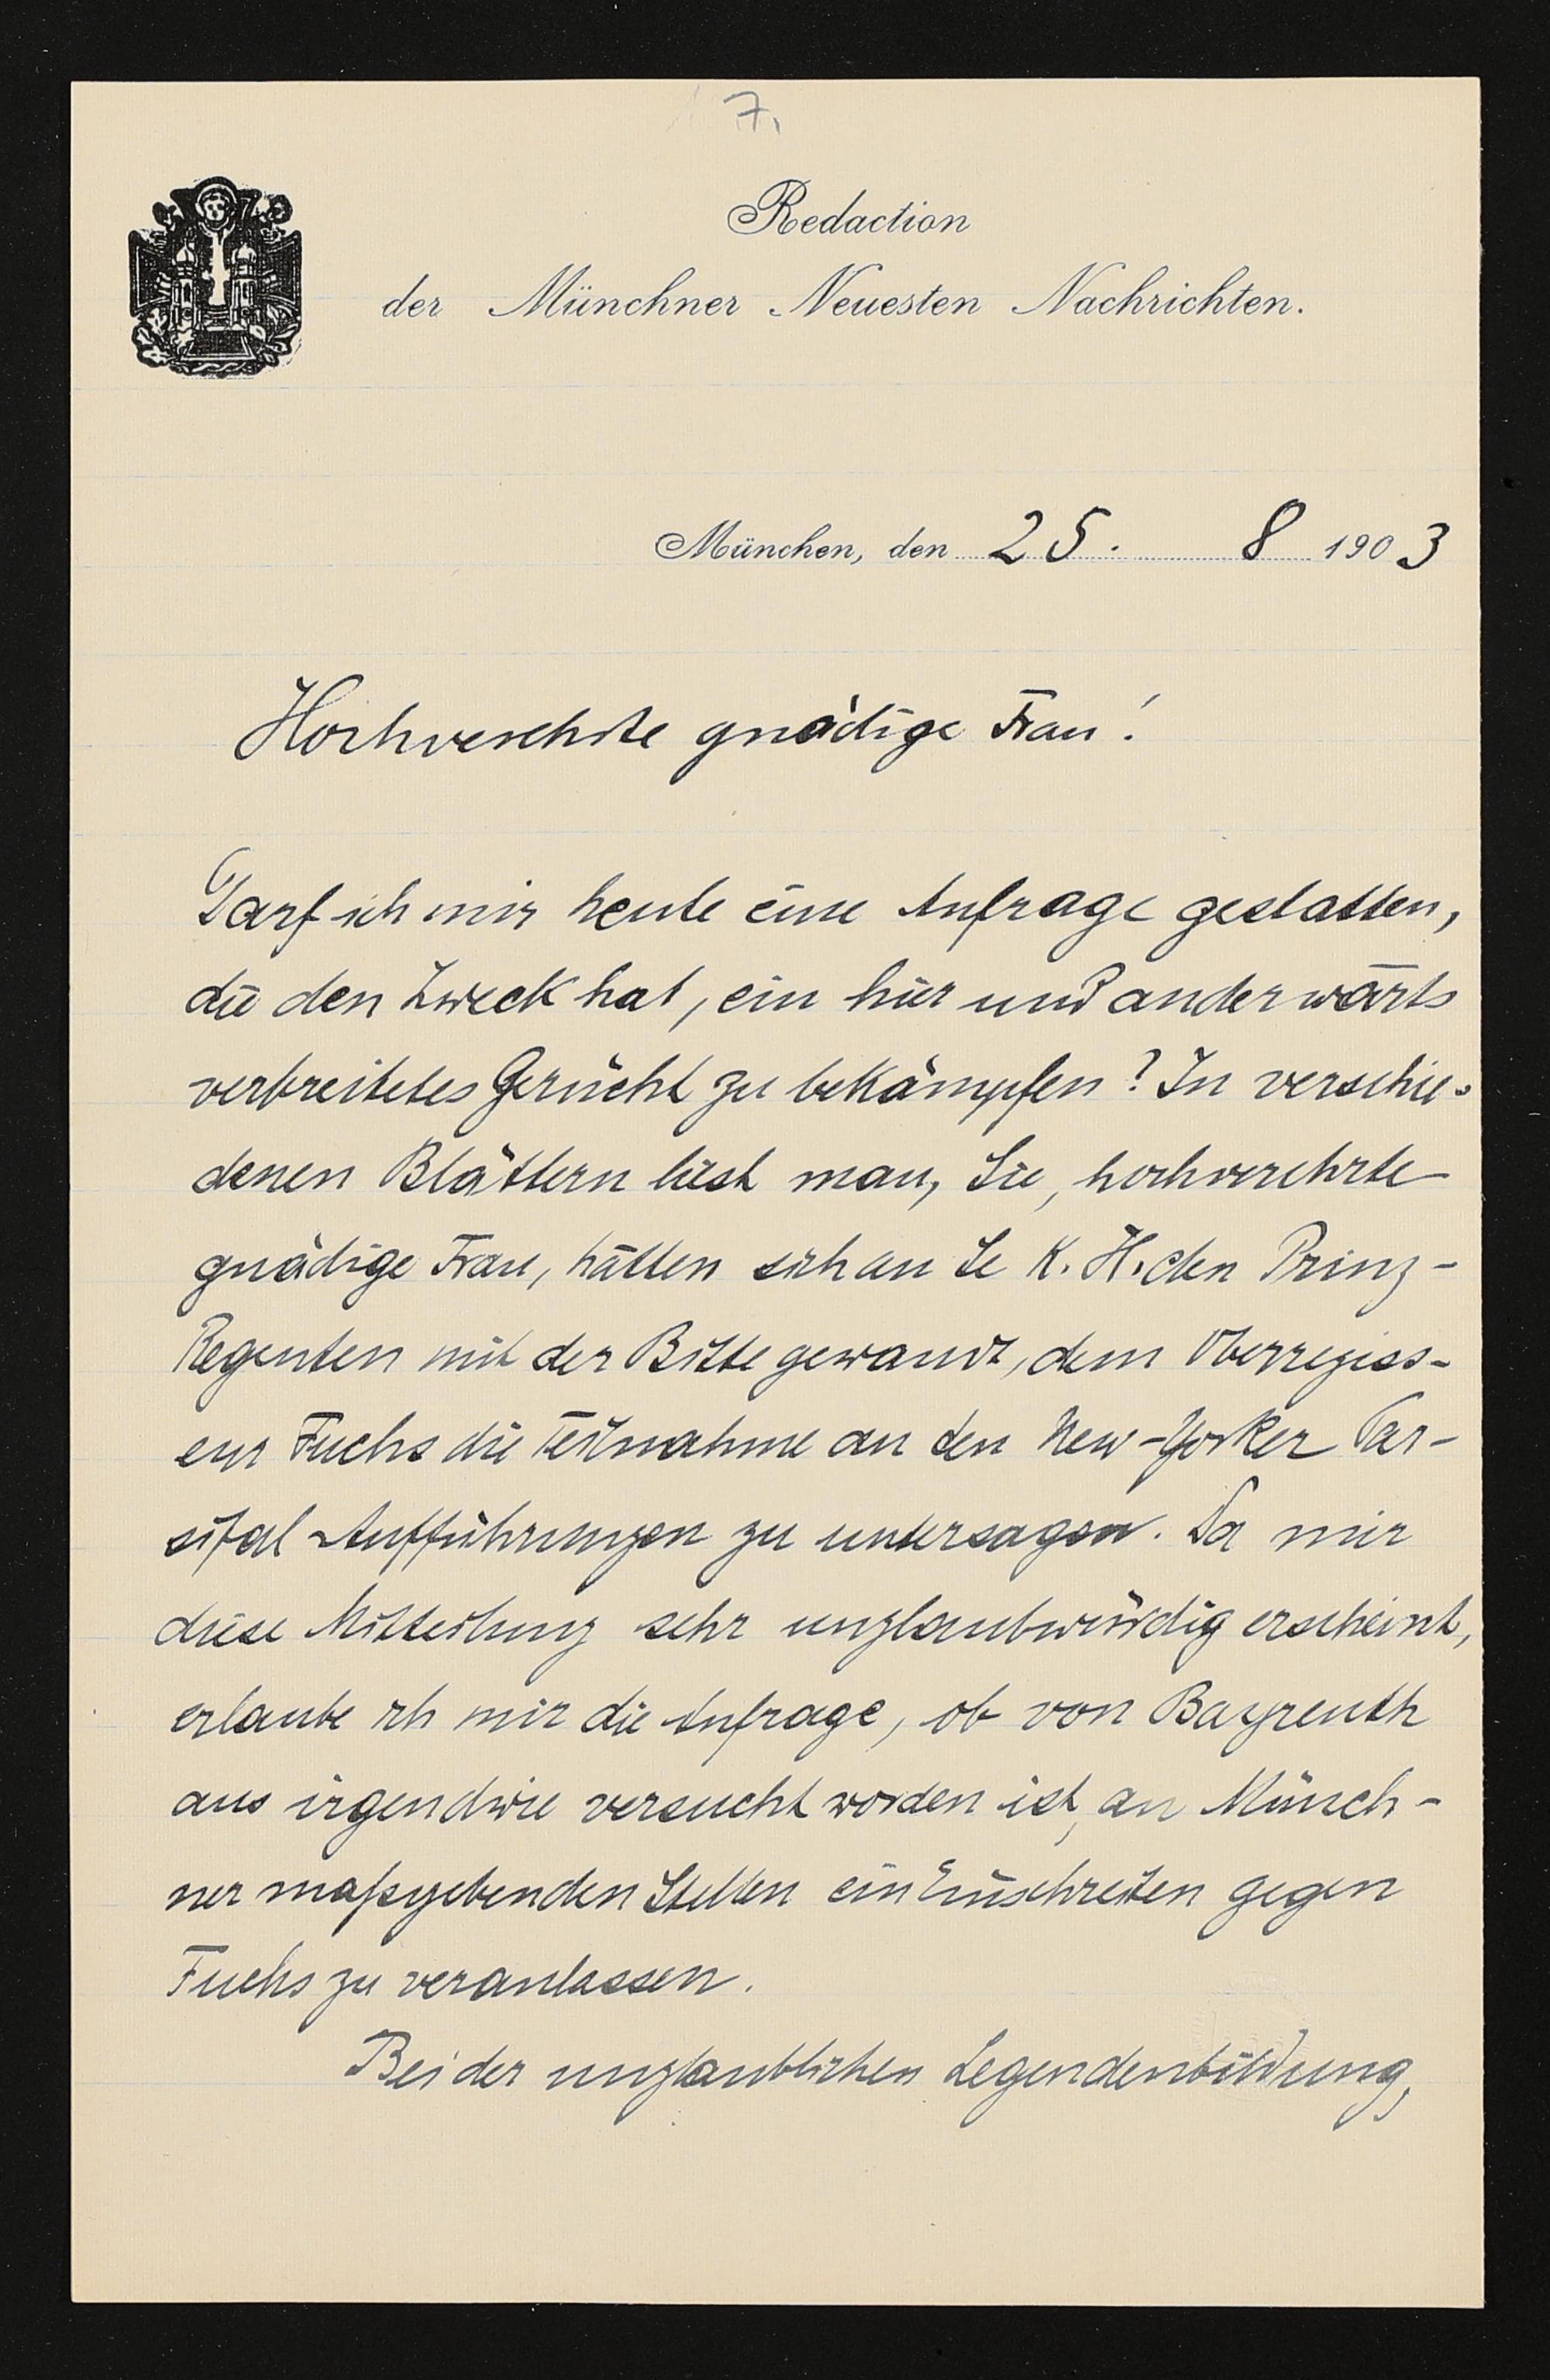 7.
Redaction
der Münchner Neuesten Nachrichten.
München, den 25. 8 1903
Hochverehrte gnädige Frau!
Darf ich mir heute eine Anfrage gestatten,
die den Zweck hat, ein hier und anderwärts
verbreitetes Gerücht zu bekämpfen? In verschie-
denen Blättern liest man, Sie, hochverehrte
gnädige Frau, hätten sich an Se K. H. den Prinz-
Regenten mit der Bitte gewandt, dem Oberregiss-
eur Fuchs die Teilnahme an den New-Yorker Par-
sifal Aufführungen zu untersagen. Da mir
diese Mitteilung sehr unglaubwürdig erscheint,
erlaube ich mir die Anfrage, ob von Bayreuth
aus irgendwie versucht worden ist, an Münch-
ner maßgebenden Stellen ein Einschreiten gegen
Fuchs zu veranlassen.
Bei der unglaublichen Legendenbildung,